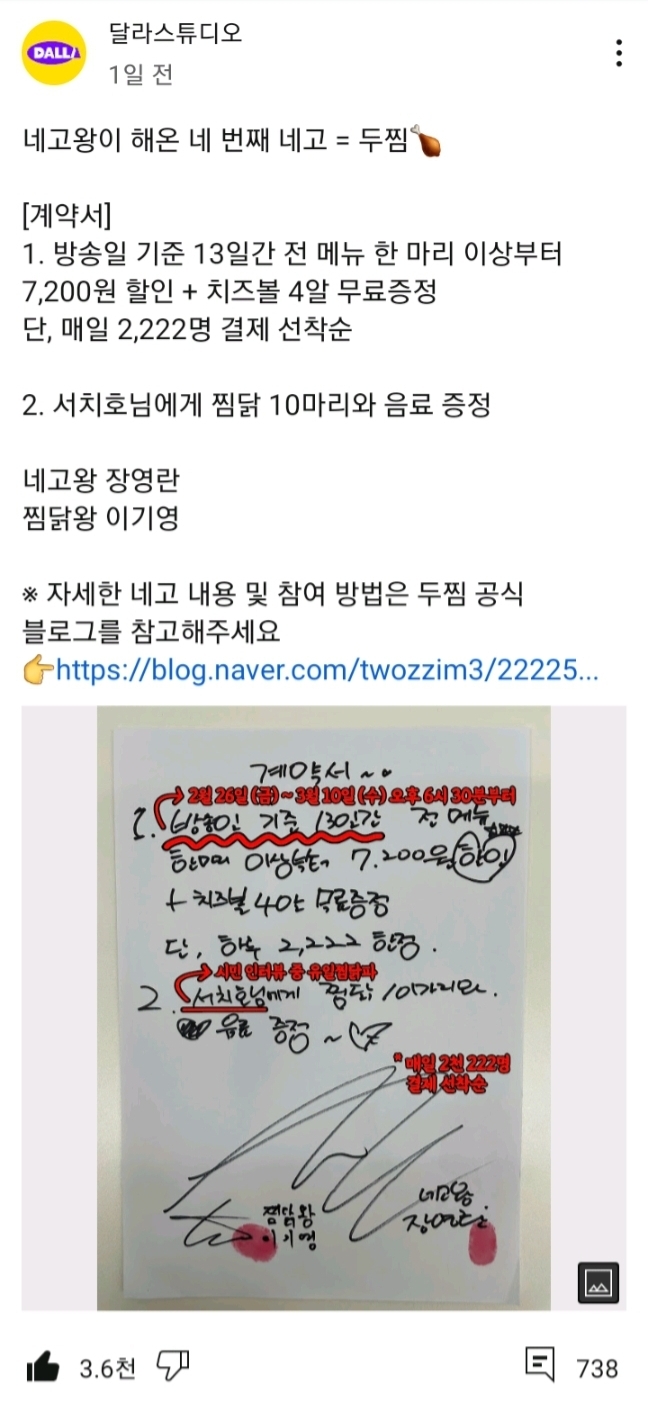 DALLA
달라스튜디오
1일 전
네고왕이 해온 네 번째 네고 = 두찜🍗
[계약서]
1. 방송일 기준 13일간 전 메뉴 한 마리 이상부터
7,200원 할인 + 치즈볼 4알 무료증정
단, 매일 2,222명 결제 선착순
2. 서치호님에게 찜닭 10마리와 음료 증정
네고왕 장영란
찜닭왕 이기영
※ 자세한 네고 내용 및 참여 방법은 두찜 공식
블로그를 참고해주세요
👉https://blog.naver.com/twozzim3/22225...
계약서~
→2월 26일(금)~3월 10일(수) 오후 6시 30분부터
1. 방송일 기준 13일간 전 메뉴
한마리 이상부터 7.200원 할인
+ 치즈볼 4알 무료증정
단, 하루 2,222 한정.
→시민 인터뷰 중 유일찜닭파
2. 서치호님에게 찜닭 10마리와.
음료 증정~
*매일 2천 222명
결제 선착순
찜닭왕
이기영
네고왕
장영란
3.6천
738